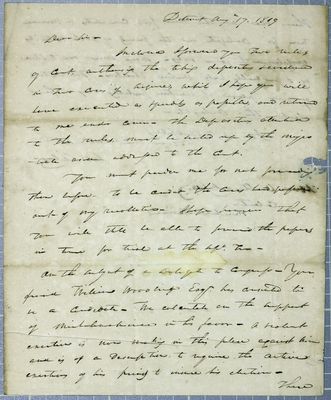 Detroit Augt 17. 1819
Dear Sir—
Inclosed I forward you two rules
of Court, authorizing the taking depositions
in two cases of which I hope you will
have executed as speedily as possible and returned
to me under cover— The depositions attached
to the rules must be sealed up by the
addressed to the Court.
You must pardon me for not forwarding
them before. to be candid the case had
out of my recollection— I hope however that
you will still be able to forward the papers
in time for trial at the
On the subject of a delegate to Congress— Your
friend William Woodbridge Esqr has consented to
be a Candidate— We calculate on the support
of Michilimackinac in his favor— A violent
exertion is now making in this place against him
and is of a description to require the active
exertions of his friends to insure his election—
There